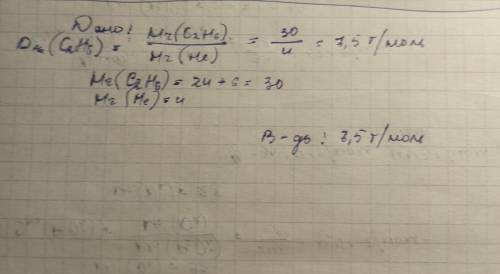 Дано:
D He (C2H6) = Mr(C2H6) / Mr(He) = 30 / 4 = 7,5 г/моль
Mr(C2H6) = 24 + 6 = 30
Mr(He) = 4
В-дь: 7,5 г/моль